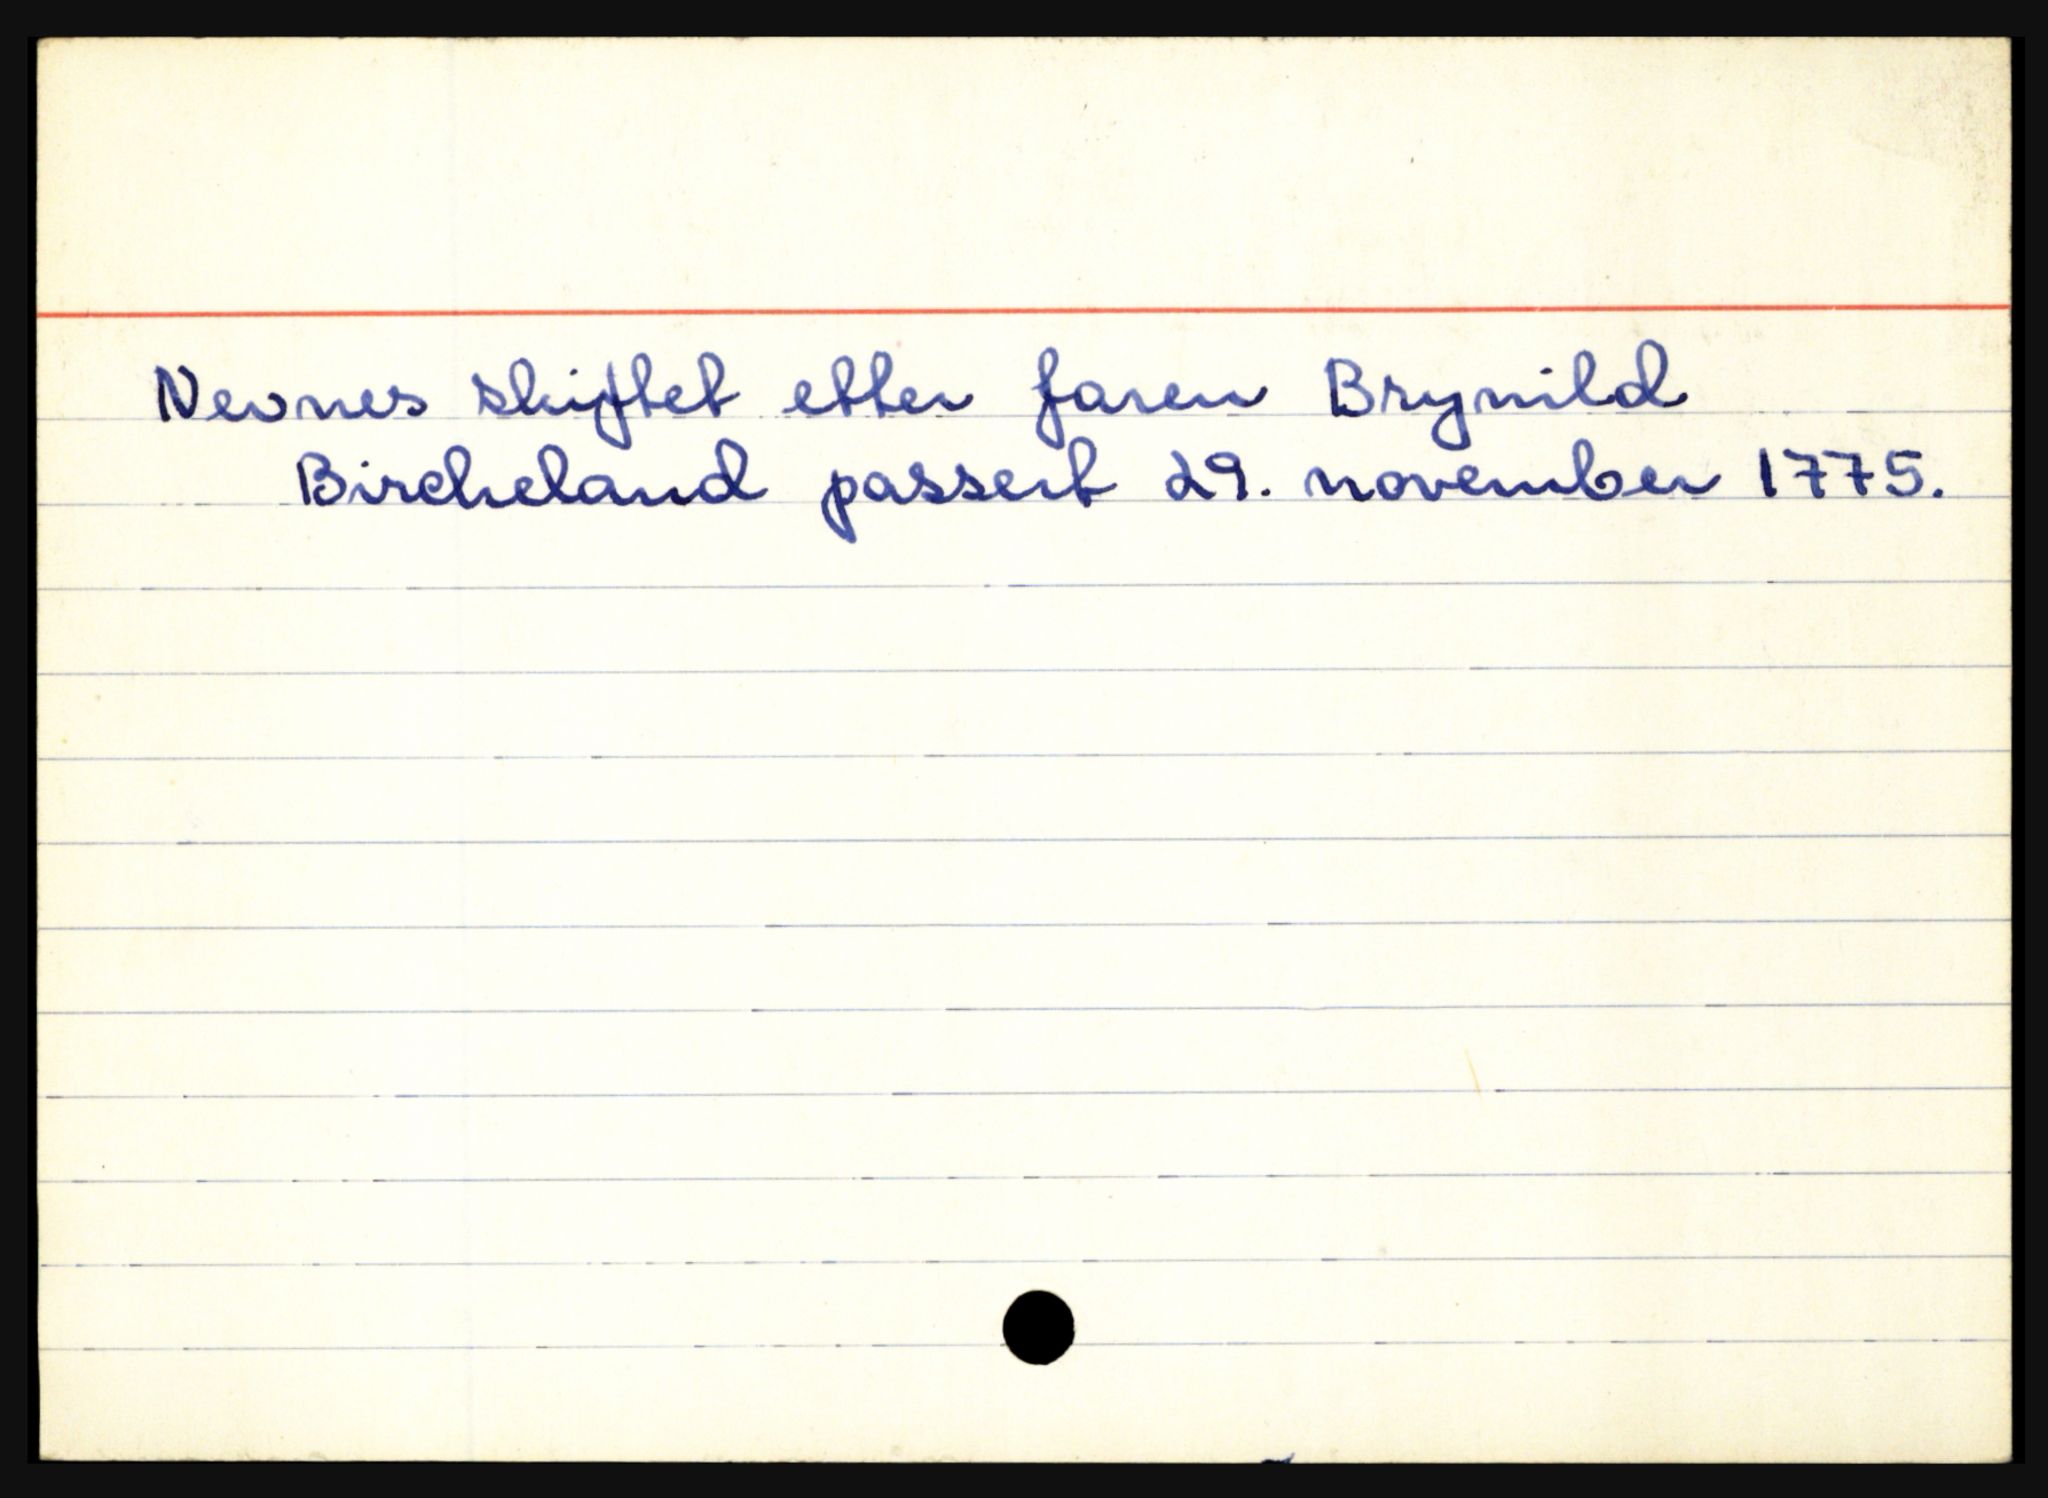 Nevnes skiftet etter faren Brynild
Bircheland passert 29. november 1775.